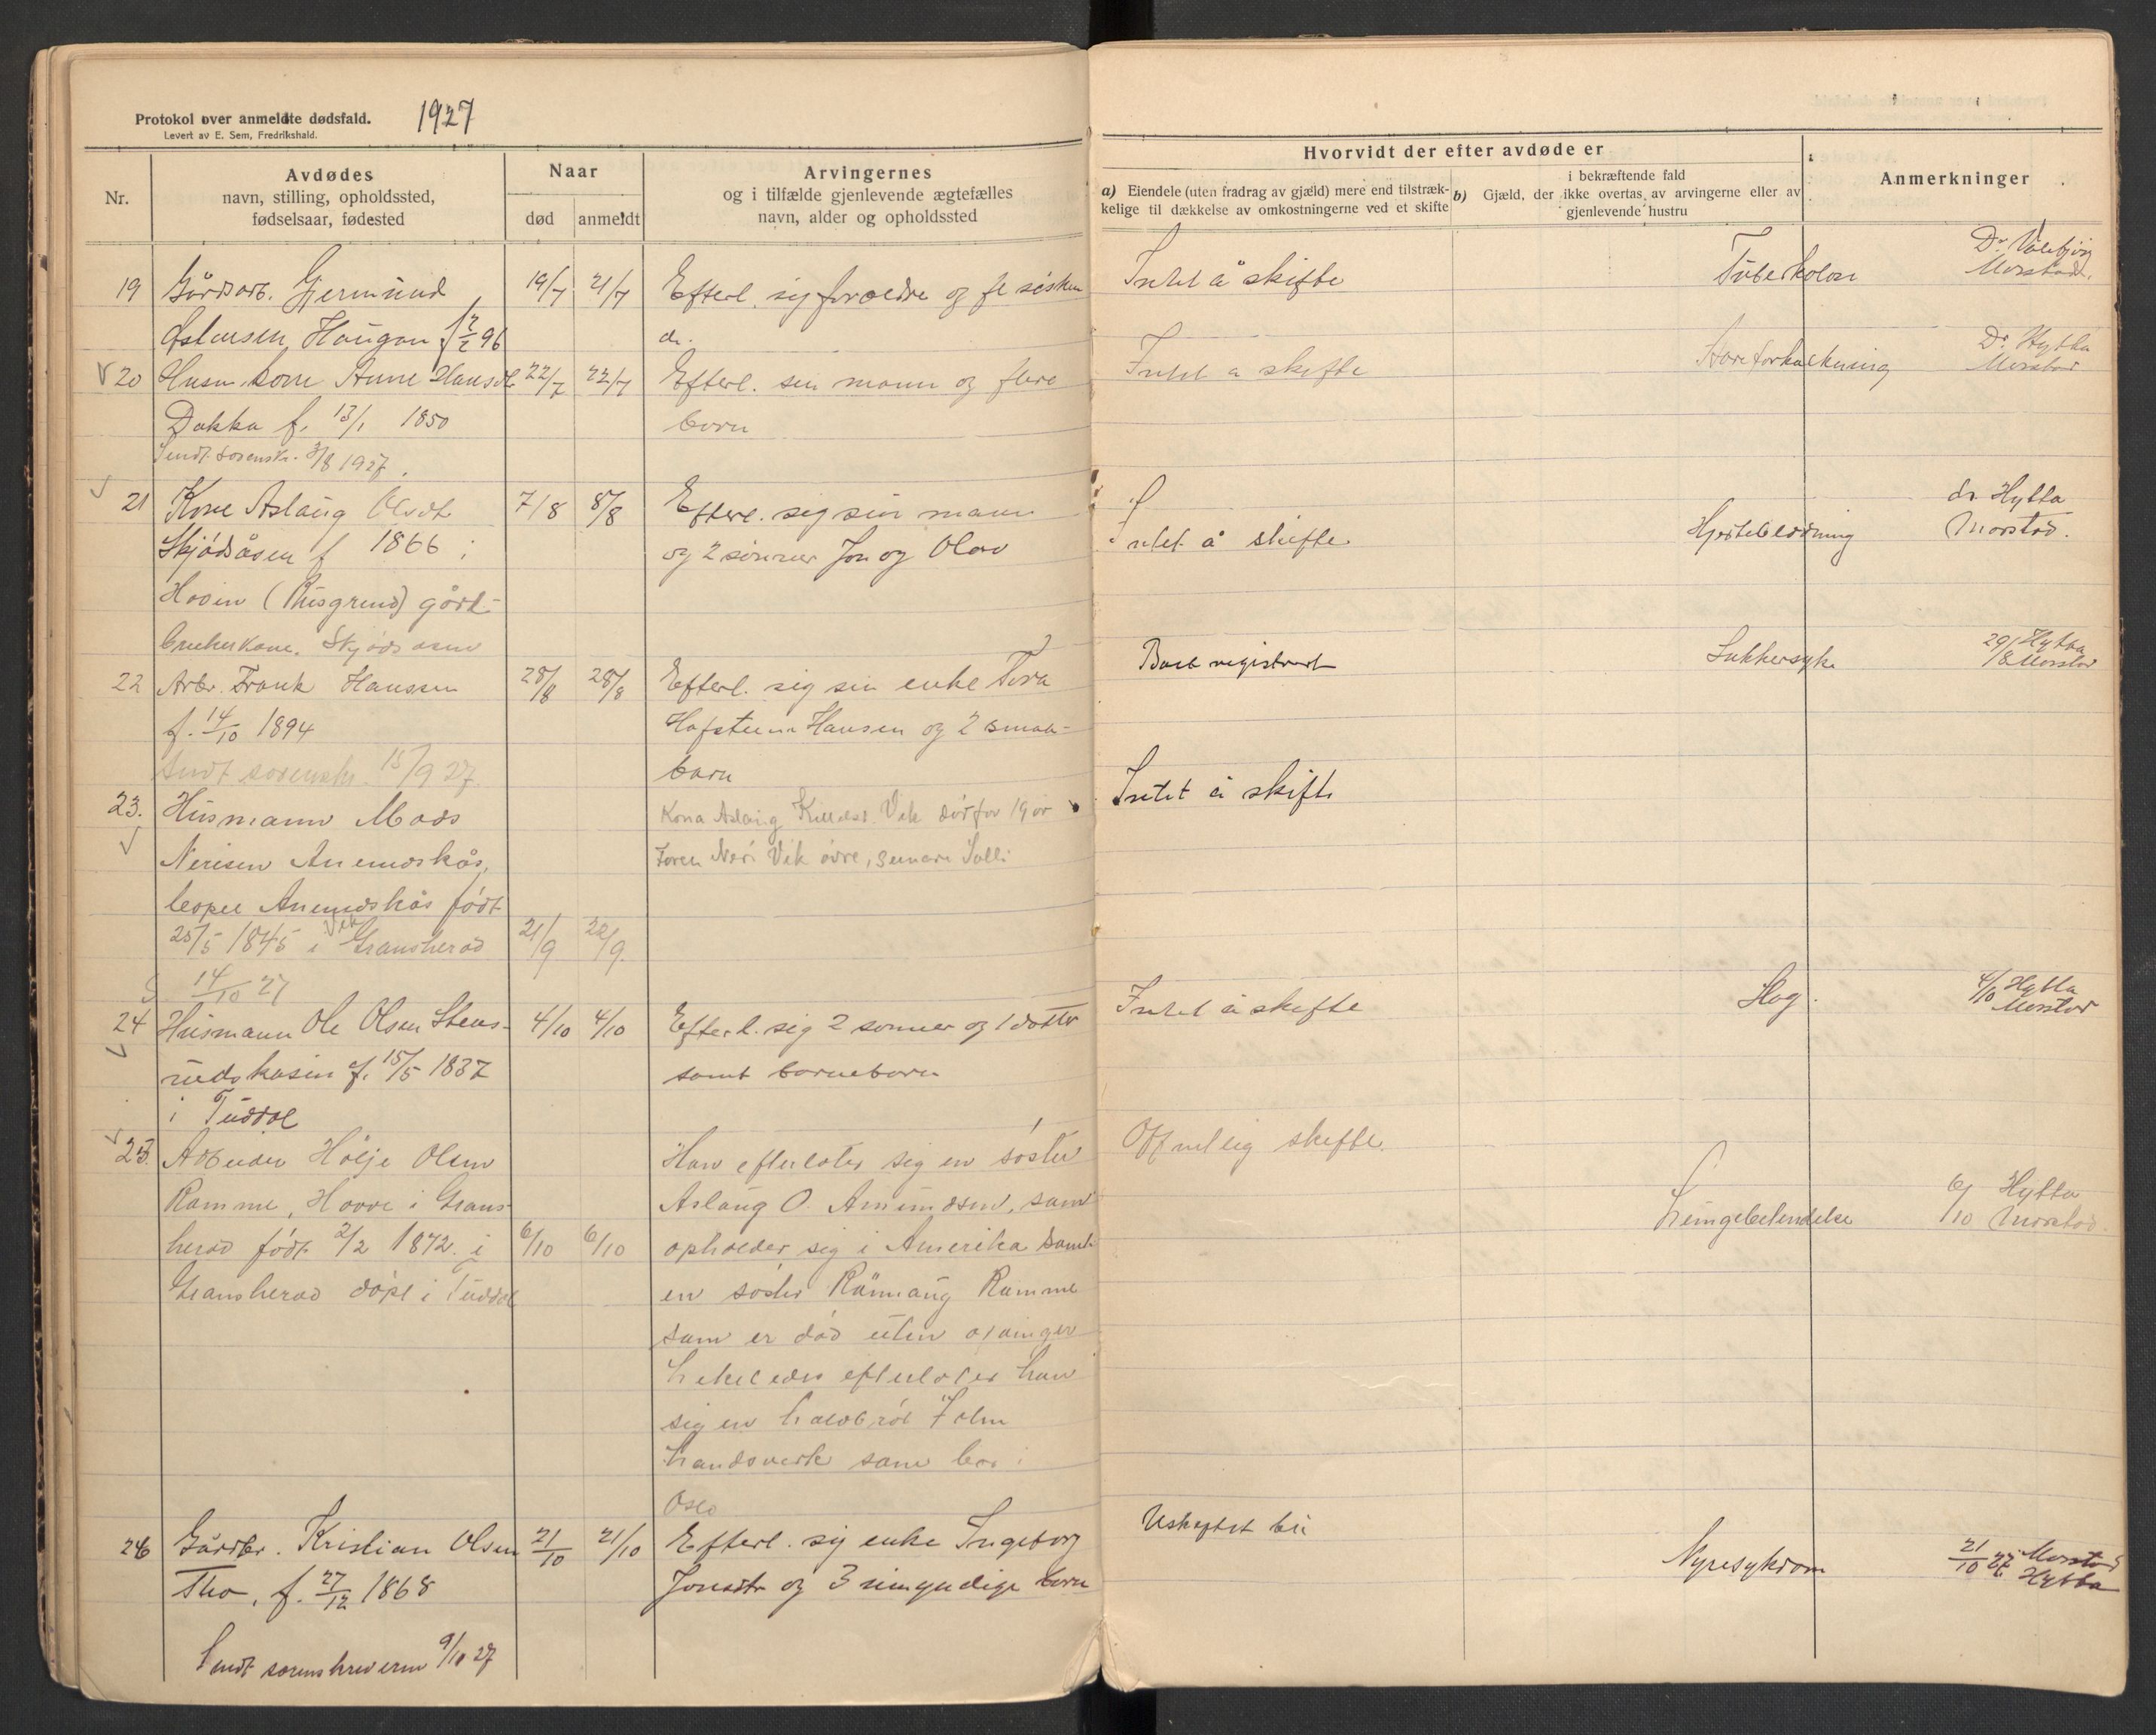 Protokol over anmeldte dødsfald. 1927
Levert av E. Sem, Fredrikshald.
Nr.
Avdødes
navn, stilling, opholdssted,
fødselsaar, fødested
Naar
død anmeldt
Arvingernes
og i tilfælde gjenlevende ægtefælles
navn, alder og opholdssted
19 Gårdsarb. Gjermund 19/7 21/7 Efterl. sig foreldre og fl søsken
Haugan f 96 de.
20 Husm. kone Anne Hansdt 22/7 22/7 Efterl. sin mann og flere
Dakka f. 13/1 1850 born
Sendt sorenskr. 3/8 1927.
21 Kone Aslaug Olsdt 7/8 8/8 Efterl. sig sin mann
Skjødsåsen f 1866 i og 2 sønner Jon og Olav
Hovin (Rusgrend) gård-
brukerkone. Skjødsåsen
22 Arbr. Frank Hanssen 28/8 28/8 Efterl. sig sin enke Tora
f. 14/10 1894 Hansen og 2 smaa-
Sendt sorenskr. 15/9 27. barn
23. Husmann Mads Kona Aslaug Vik død for 19 år
Nerisen
født
25/5 1845 i Vik Gransherad 21/9 22/9.
14/10 27
24 Husmann Ole Olsen Stens- 4/10 4/10 Efterl. sig 2 sønner og 1 datter
rudskåsin f. 15/5 1837 samt barneborn
i Tuddal
25. Arbeider Hølje Olsen Han efterlater sig en søster
Ramme, Hovde i Grans- Aslaug O. Amundsen, som
herad født 2/2 1872. i 6/10 6/10 opholder sig i Amerika samt
Gransherad døpt i Tuddal en søster Rannaug Ramme
som er død uten arvinger
Likeledes efterlater han
sig en halvbror
som bor i
Oslo
26 Gårdbr. Kristian Olsen 21/10 21/10 Efterl. sig enke Ingeborg
Tho, f. 27/12 1868 Jonsdtr og 3 umyndige born
Sendt sorenskriveren 9/11 27
Hvorvidt der efter avdøde er
a) Eiendele (uten fradrag av gjæld) mere end tilstræk-
kelige til dækkelse av omkostningerne ved et skifte
i bekræftende fald
b) Gjæld, der ikke overtas av arvingerne eller av
gjenlevende hustru
Anmerkninger
Intet å skifte Tuberkolose Dr.
Morstad.
Intet a skifte Aareforkalkning Dr Hytta
Morstad
Intet å skifte Hjerteblødning dr Hytta
Morstad.
Boet registrert Sukkersyke 29/8 Hytta
Morstad
Intet å skifte
Intet å skifte Slag. 4/10 Hytta
Morstad
Offentlig skifte.
Lungebetendelse 6/10 Hytta
Morstad.
Uskiftet bu
Nyresykdom 21/10 27 Morstad
Hytta